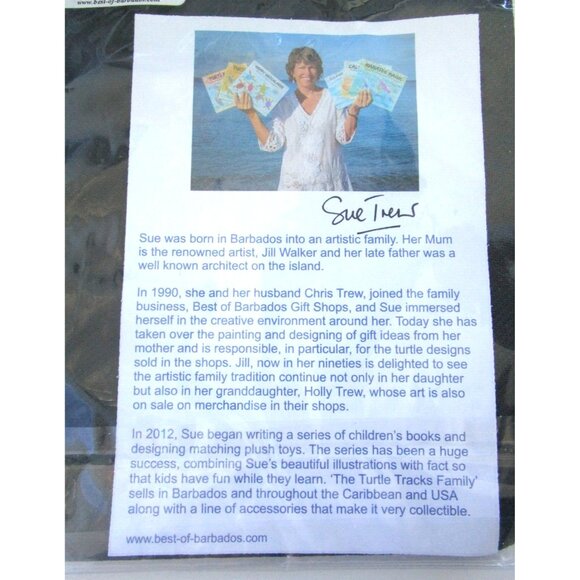 www.best-of-barbados.com
Sue Trew
Sue was born in Barbados into an artistic family. Her Mum
is the renowned artist, Jill Walker and her late father was a
well known architect on the island.
In 1990, she and her husband Chris Trew, joined the family
business, Best of Barbados Gift Shops, and Sue immersed
herself in the creative environment around her. Today she has
taken over the painting and designing of gift ideas from her
mother and is responsible, in particular, for the turtle designs
sold in the shops. Jill, now in her nineties is delighted to see
the artistic family tradition continue not only in her daughter
but also in her granddaughter, Holly Trew, whose art is also
on sale on merchandise in their shops.
In 2012, Sue began writing a series of children's books and
designing matching plush toys. The series has been a huge
success, combining Sue's beautiful illustrations with fact so
that kids have fun while they learn. 'The Turtle Tracks Family'
sells in Barbados and throughout the Caribbean and USA
along with a line of accessories that make it very collectible.
www.best-of-barbados.com